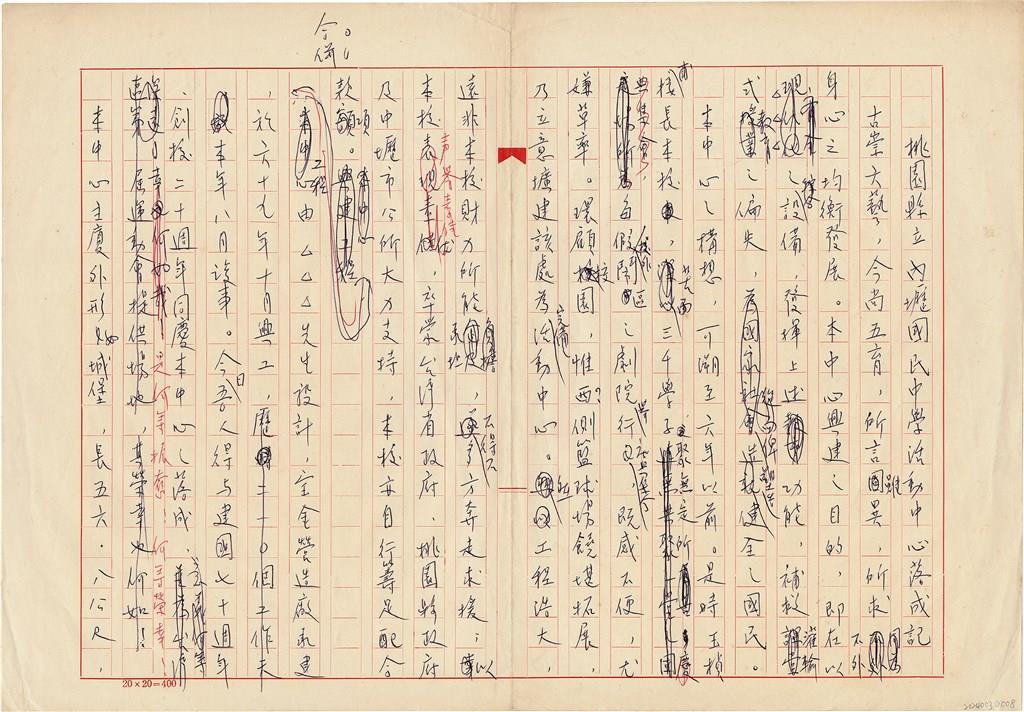 合併
桃園縣立內壢國民中學活動中心落成記
古崇六藝，今尚五育，所言雖異，所求不外
身心之均衡發展。本中心興建之目的，即在以
之設備，發揮上述功能，補救灌輸
式教育之偏失，為國家社會造就健全之國民。
本中心之構想，可溯至六年以前。是時玉楨
長本校，三千學子，聚無定所，慶
典集會，每假鬧區之劇院行之，既感不便，尤
嫌草率。環顧校園，惟西側籃球場饒堪拓展，
乃立意擴建該處為活動中心。工程浩大，
遠非本校財力所能負擔，多方奔走求援；以
本校聲譽素佳，卒蒙台灣省政府、桃園縣政府
及中壢市公所大力支持，本校亦自行籌足配合
款項。
工程由△△△先生設計，金營造廠承建
，於六十九年十月興工，歷二一〇個工作天
，本年八月竣事。今日吾人得與建國七十週年
、創校二十週年同慶本中心之落成，
是何等振奮！何等榮幸！
屆運動會提供場地，其榮幸也何如！
本中心主廈外形如城堡，長五六．八公尺，
20×20=400